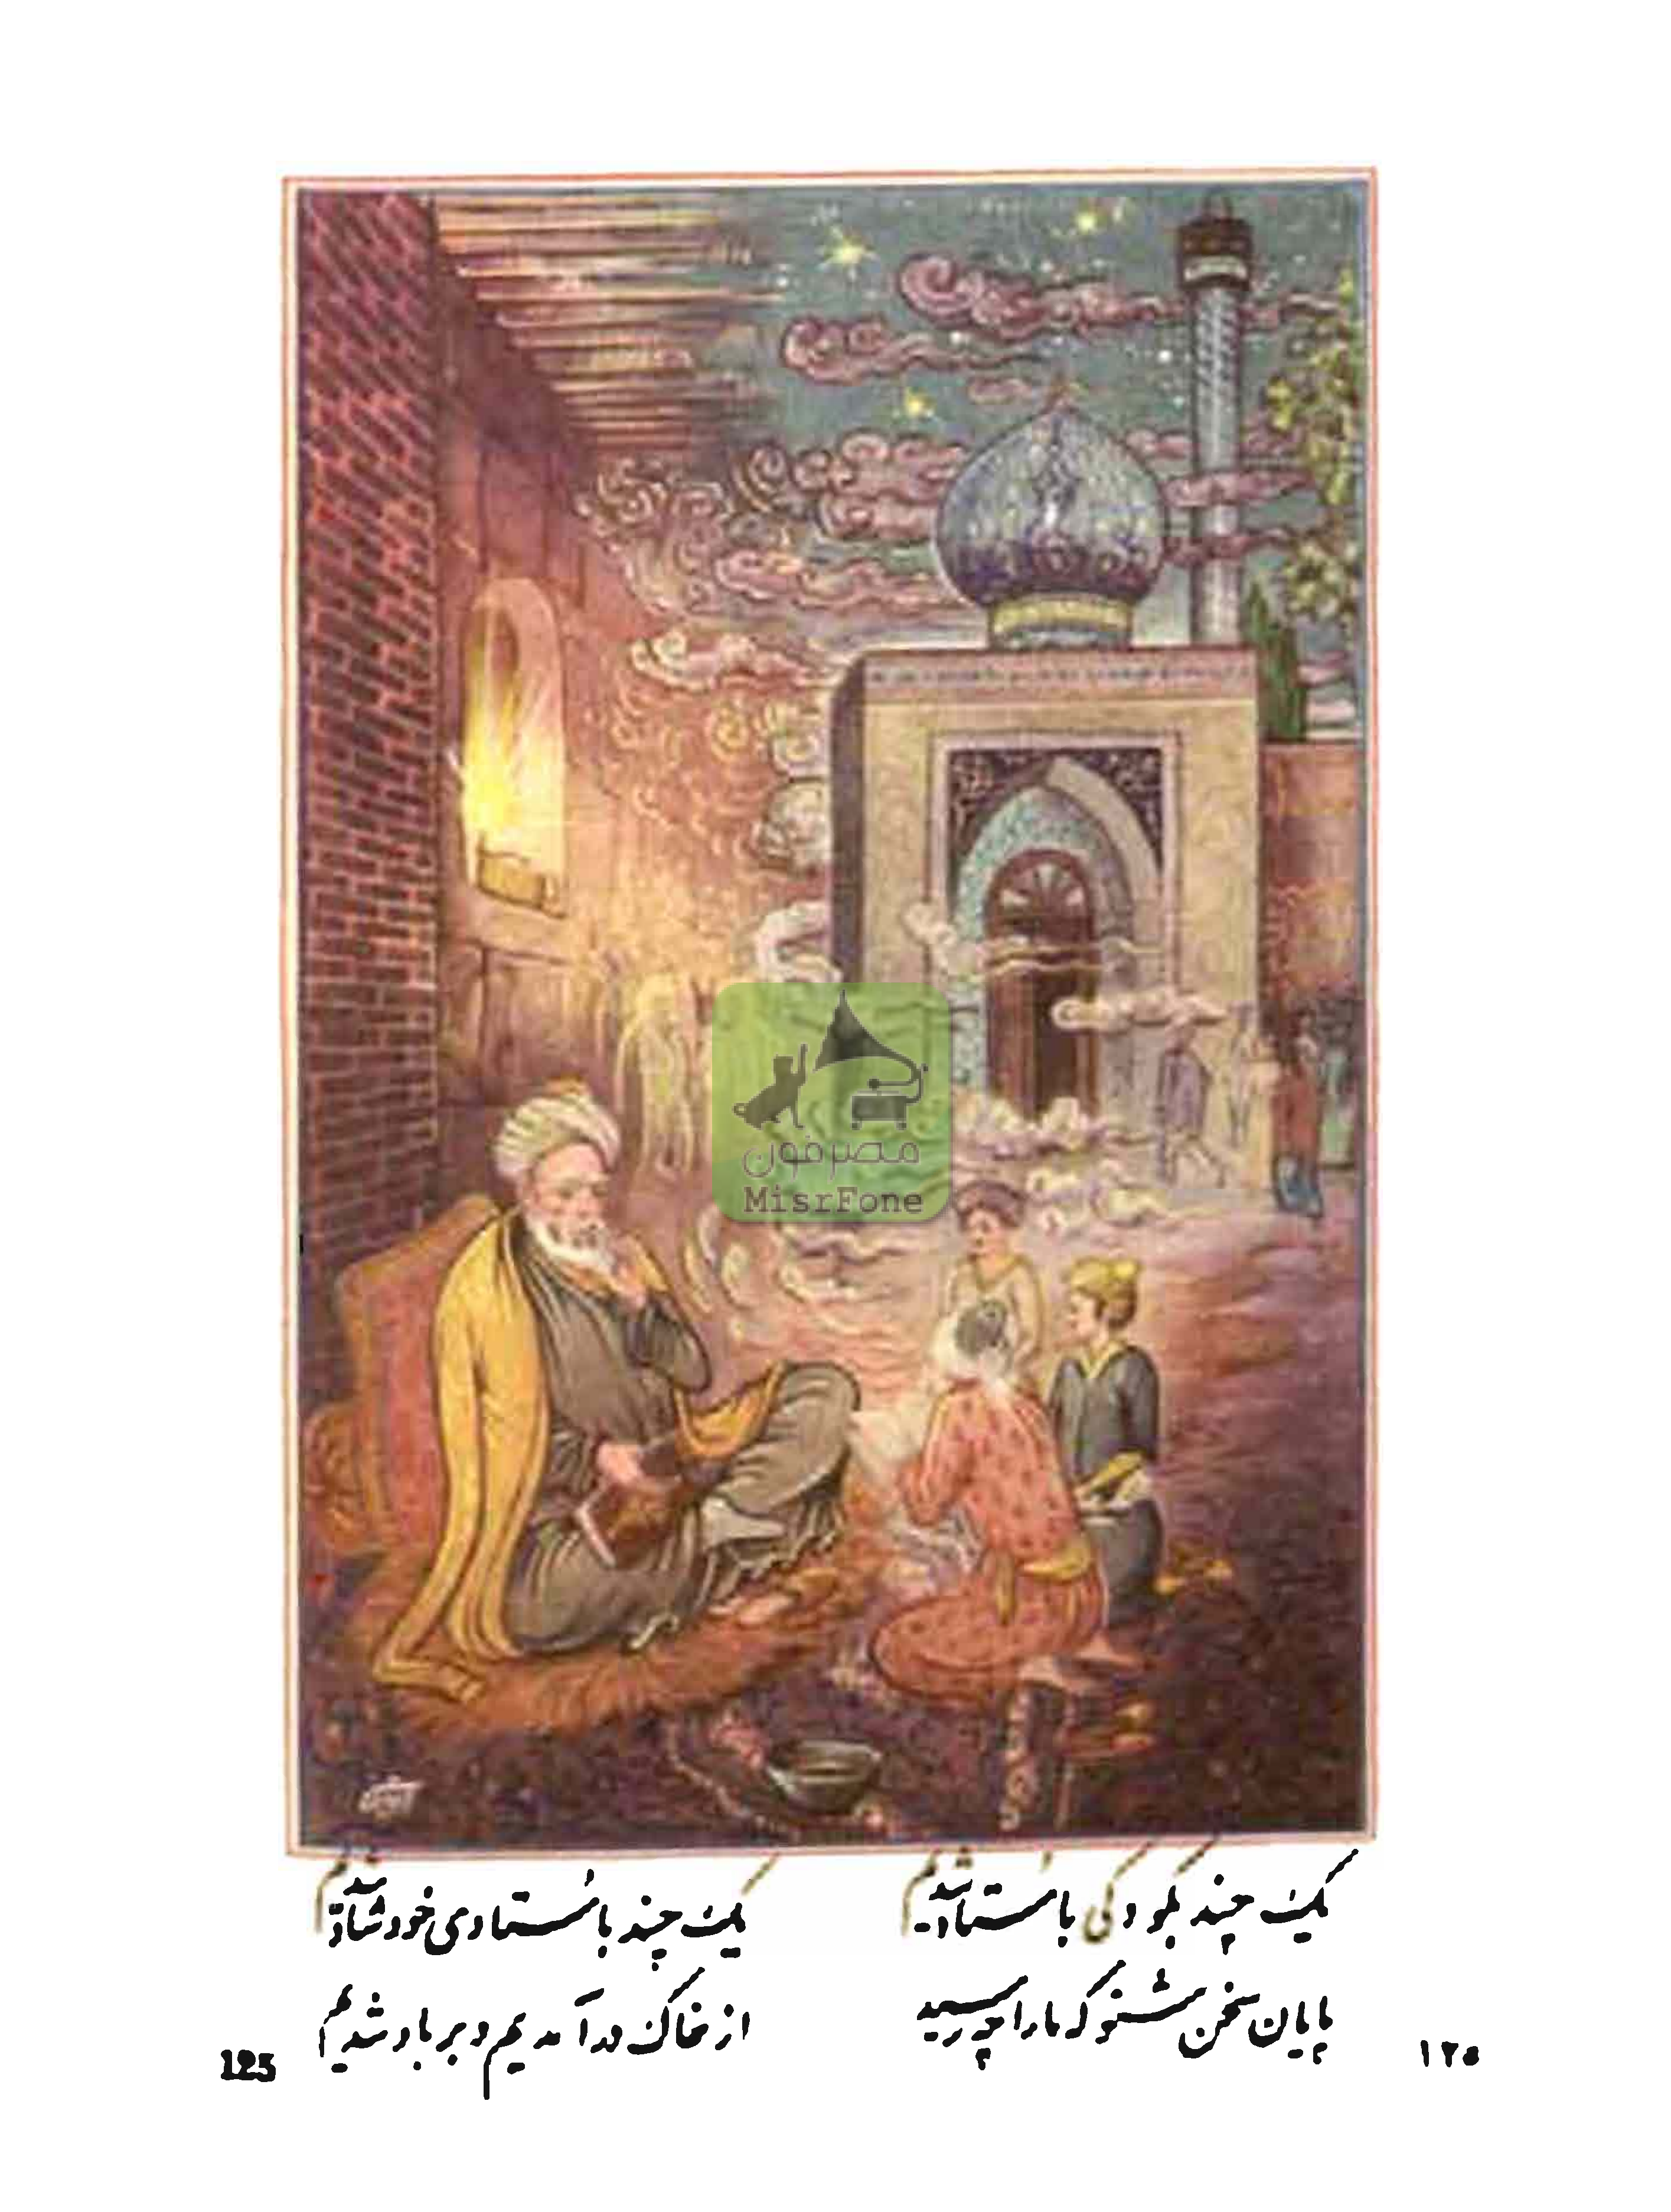 مصرفون
MisrFone
یک چند بکودکی باستاد شدیم
یک چند باُستادی خود شاد شدیم
پایان سخن شنو که ما را چه رسید
از خاک درآمدیم و بر باد شدیم
125
۱۲۵